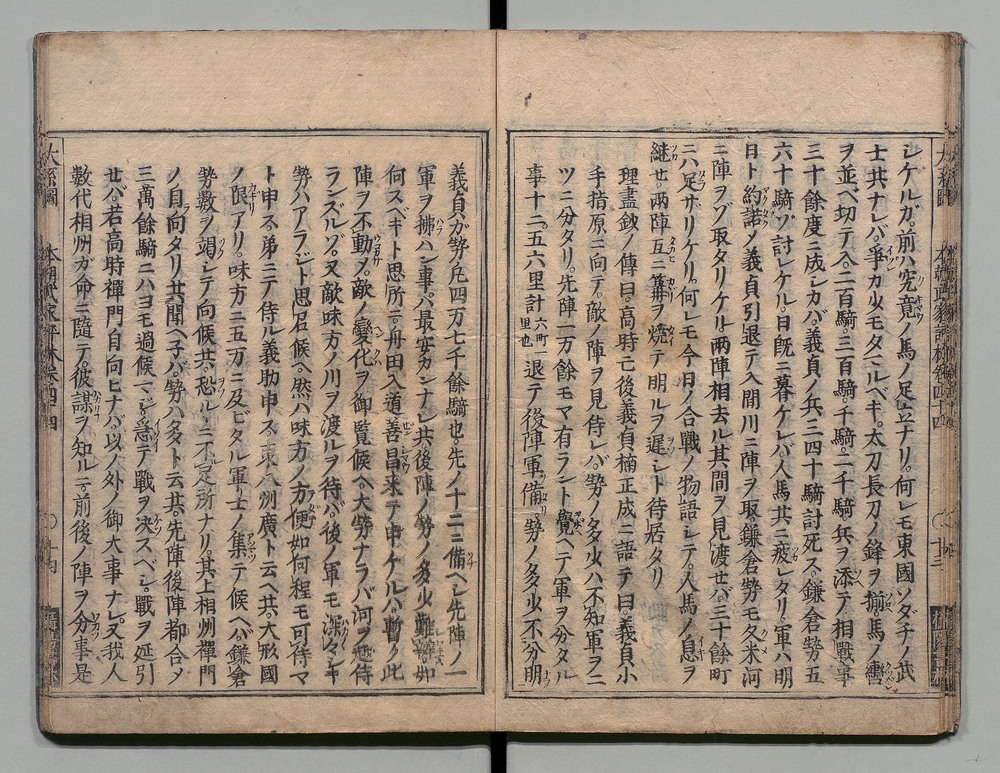 シゲルガ。前ハ究竟ノ馬ノ足立ナリ。何レモ東國ソダチノ武
士共ナレバ。爭カ少モタマルベキ。太刀長刀ノ鋒ヲ揃。馬ノ轡
ヲ並ベ切テ入。二百騎。三百騎。千騎。二千騎兵ヲ添テ相戰事
三十餘度ニ成シカバ。義貞ノ兵三四十騎討死ス。鎌倉勢五
六十騎ゾ討レケル。日既ニ暮ケレバ。人馬共ニ疲レタリ。軍ハ明
日ト約諾メ義貞引退テ入間川ニ陣ヲ取。鎌倉勢モ久米河
ニ陣ヲゾ取タリケル。兩陣相去ル其間ヲ見渡セバ。三十餘町
ニハ足サリケリ。何レモ今日ノ合戰ノ物語シテ。人馬ノ息ヲ
継セ。兩陣互ニ篝ヲ焼テ明ルヲ遲シト待居タリ
理盡鈔ノ傳曰。高時亡後義貞楠正成ニ語テ曰。義貞小
手指原ニ向テ。敵ノ陣ヲ見侍レバ。勢ノ多少ハ不知軍ヲ二
ツニ分タリ。先陣一万餘モマ有ラント覺ヘテ軍ヲ分タル
事十二。五六里計六町一里也退テ後陣軍備。勢ノ多少不分明
義貞ガ勢凡四万七千餘騎也。先ノ十二ニ備ヘシ先陣ノ一
軍ヲ拂ハン事。ハ最安カンナレ共後陣ノ勢ノ多少難辨。如
何スベキト思所ニ。舟田入道善昌来テ申ケルハ。暫ク此
陣ヲ不動メ。敵ノ變化ヲ御覧候ヘ大勢ナラバ河ヲ越侍
ランズルゾ。又敵味方ノ川ヲ渡ルヲ待バ。後ノ軍モ深々シキ
勢ハアラジト思召候ヘ。然ハ味方ノ方便如何程モ可侍マ
ト申ス。弟ニテ侍ル義助申ス。東八州廣ト云ヘ共。大形國
ノ限アリ。味方ニ五万ニ及ビタル軍士ノ集テ候ヘバ。鎌倉
勢數ヲ竭シテ向候共。恐ルニ不足所ナリ。其上相州禪門
ノ自向タリ共聞ヘ子バ。勢ハ多ト云共。先陣後陣都合メ
三萬餘騎ニハヨモ過候マジ。急テ戰ヲ决スベシ。戰ヲ延引
セバ。若高時禪門自向ヒナバ。以ノ外ノ御大事ナレ。又我人
數代相州ガ命ニ隨テ彼謀ヲ知ル。前後ノ陣ヲ分事是